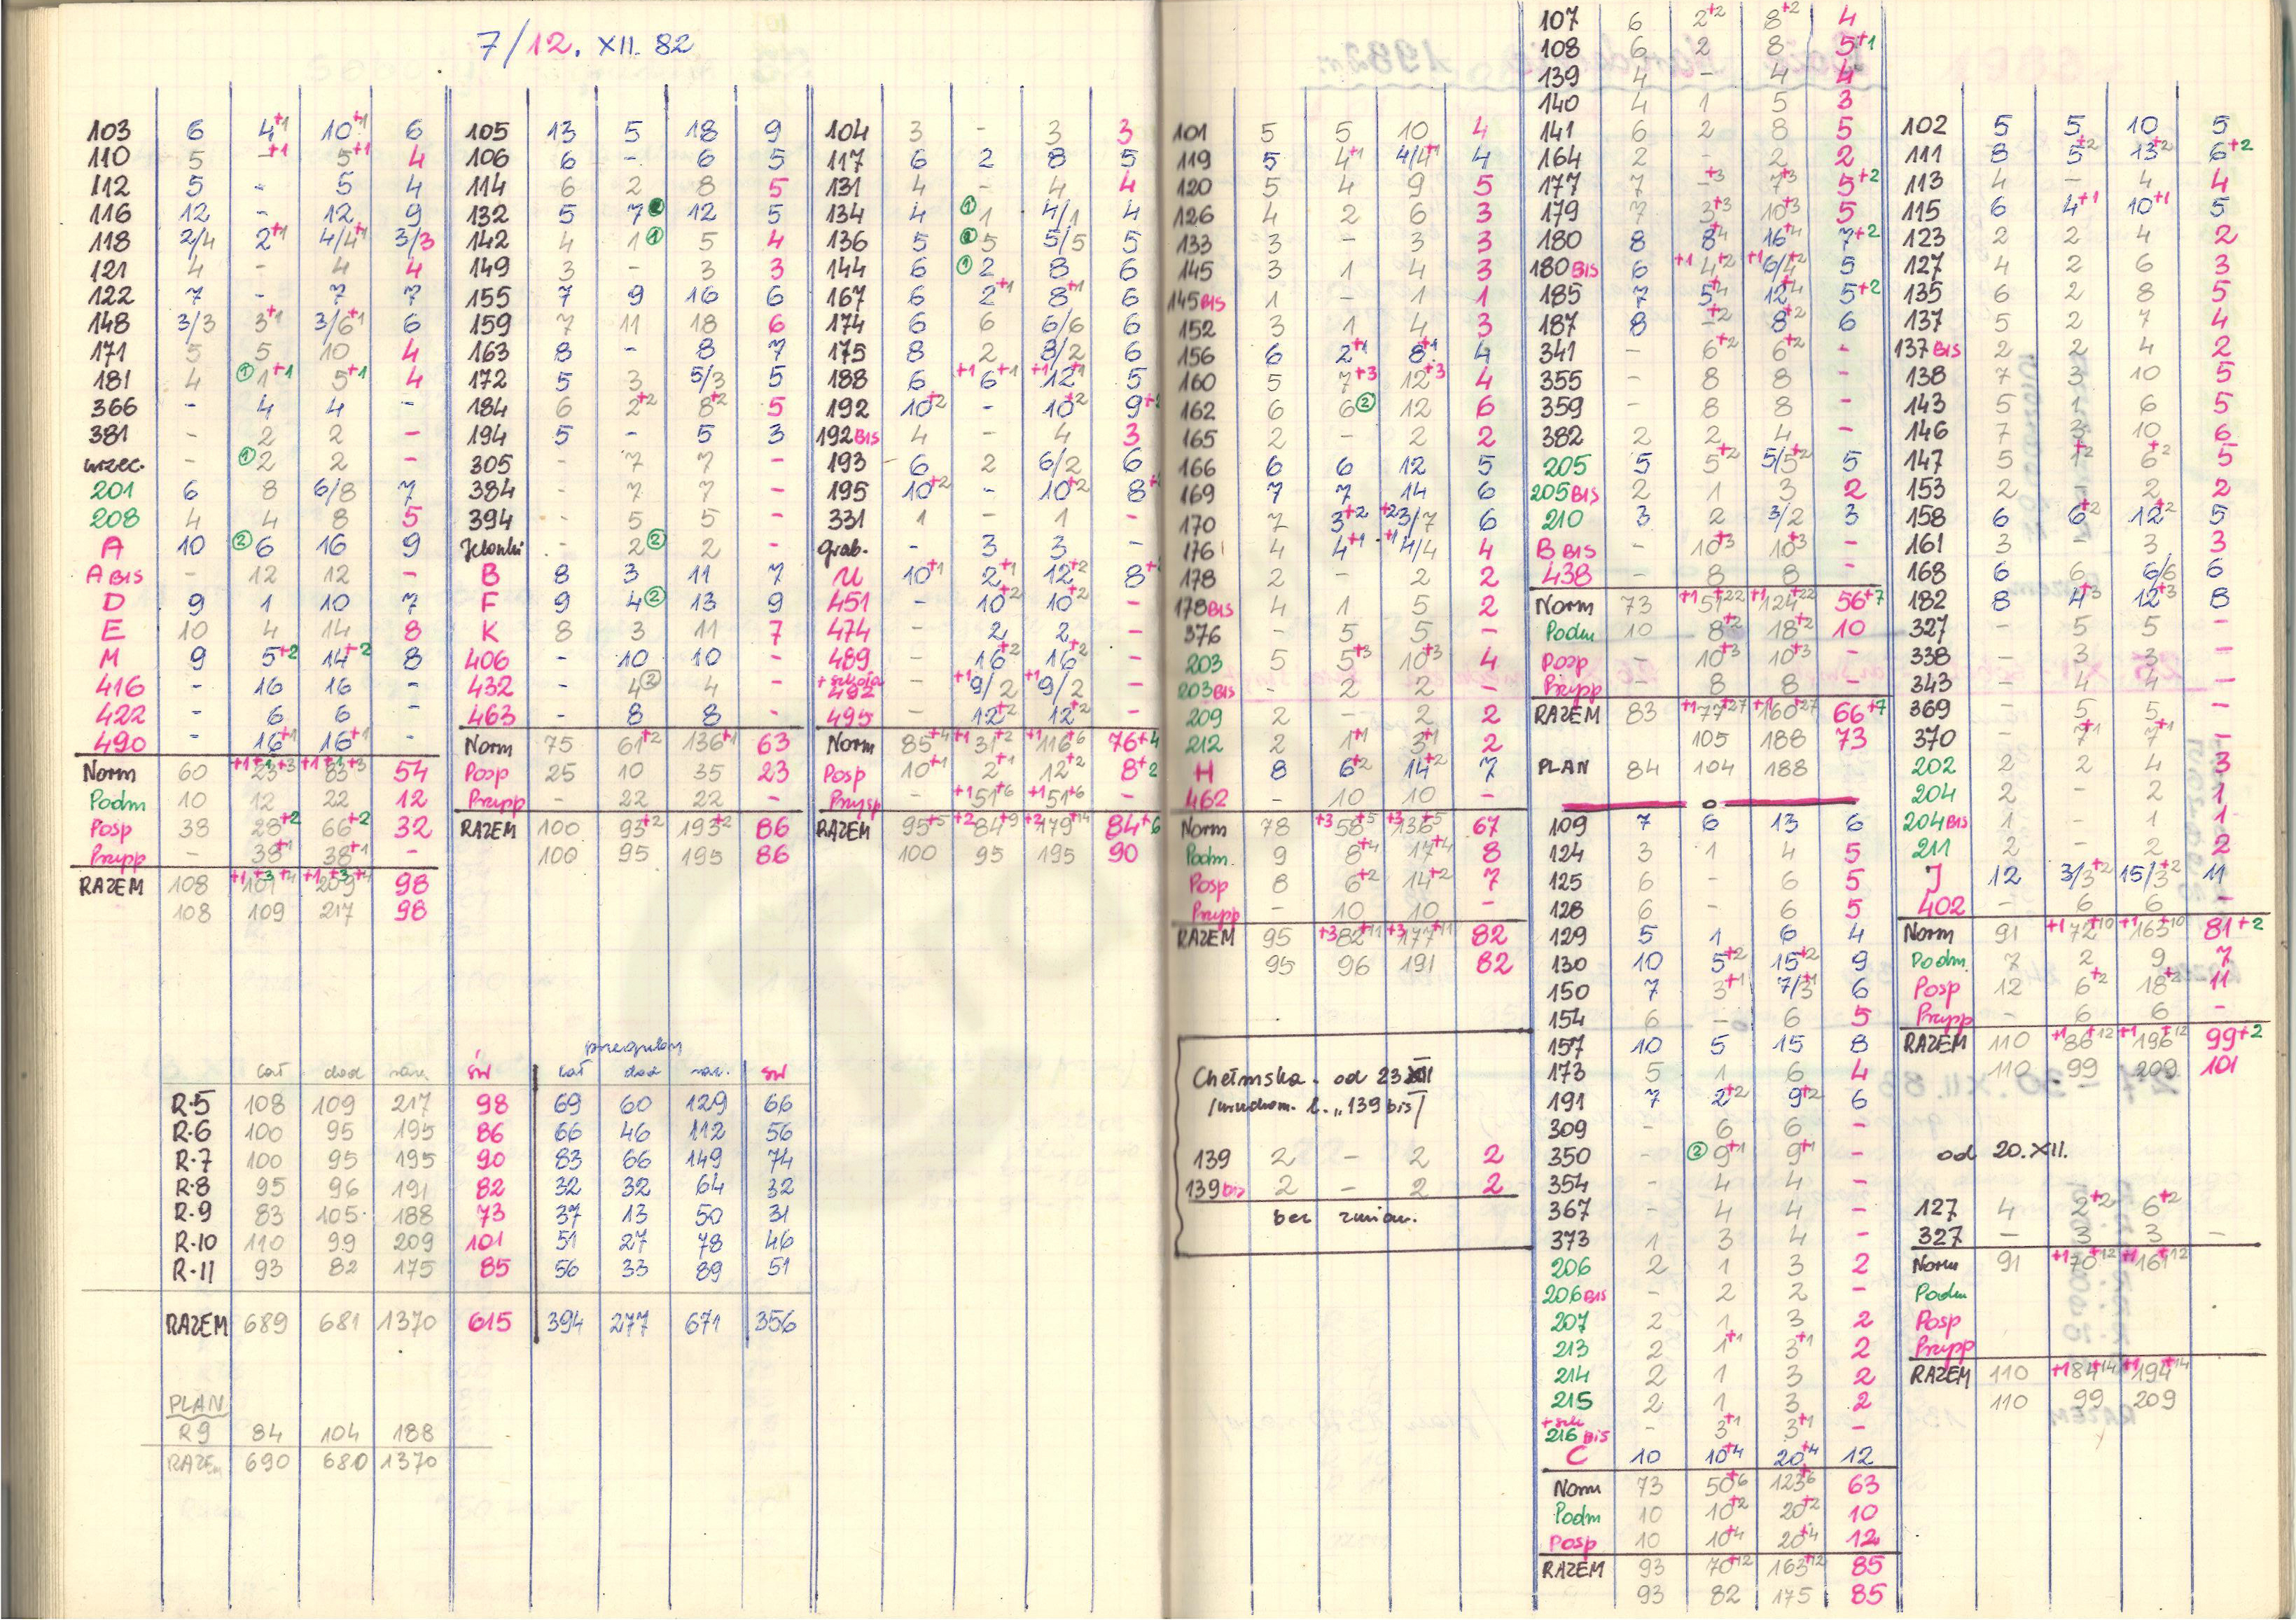 7/12. XII. 82
103 6 4+1 10+1 6
110 5 -+1 5+1 4
112 5 - 5 4
116 12 - 12 9
118 2/4 2+1 4/4+1 3/3
121 4 - 4 4
122 7 - 7 7
148 3/3 3+1 3/6+1 6
171 5 5 10 4
181 4 ① 1+1 5+1 4
366 - 4 4 -
381 - 2 2 -
wrzec. - ① 2 2 -
201 6 8 6/8 7
208 4 4 8 5
A 10 ② 6 16 9
A BIS - 12 12 -
D 9 1 10 7
E 10 4 14 8
M 9 5+2 14+2 8
416 - 16 16 -
422 - 6 6 -
490 - 16+1 16+1 -
Norm 60 +1+1 23+3 +1+1 83+3 54
Podm 10 12 22 12
Posp 38 28+2 66+2 32
Przysp - 38+1 38+1 -
RAZEM 108 +1+3 101+4 +1+3 209+4 98
108 109 217 98
105 13 5 18 9
106 6 - 6 5
114 6 2 8 5
132 5 7 12 5
142 4 1 ① 5 4
149 3 - 3 3
155 7 9 16 6
159 7 11 18 6
163 8 - 8 7
172 5 3 5/3 5
184 6 2+2 8+2 5
194 5 - 5 3
305 - 7 7 -
384 - 7 7 -
394 - 5 5 -
Jelonki - 2 ② 2 -
B 8 3 11 7
F 9 4 ② 13 9
K 8 3 11 7
406 - 10 10 -
432 - 4 ② 4 -
463 - 8 8 -
Norm 75 61+2 136+1 63
Posp 25 10 35 23
Przysp - 22 22 -
RAZEM 100 93+2 193+2 86
100 95 195 86
104 3 - 3 3
117 6 2 8 5
131 4 - 4 4
134 4 ① 1 4/1 4
136 5 5 5/5 5
144 6 ① 2 8 6
167 6 2+1 8+1 6
174 6 6 6/6 6
175 8 2 8/2 6
188 6 +1 6+1 +1 12+1 5
192 10+2 - 10+2 9+2
192 BIS 4 - 4 3
193 6 2 6/2 6
195 10+2 - 10+2 8+
331 1 - 1 -
grab. - 3 3 -
U 10+1 2+1 12+2 8+
451 - 10+2 10+2 -
474 - 2 2 -
489 - 16+2 16+2 -
+ szkoła
492 - +1 9/2 +1 9/2 -
495 - 12+2 12+2 -
Norm 85+4 +1 31+2 +1 116+6 76+4
Posp 10+1 2+1 12+2 8+2
Przysp - +1 51+6 +1 51+6 -
RAZEM 95+5 +2 84+9 +2 179+14 84+6
100 95 195 90
przeguby
cał dod raz. św cał dod raz. św
R-5 108 109 217 98 69 60 129 66
R-6 100 95 195 86 66 46 112 56
R-7 100 95 195 90 83 66 149 74
R-8 95 96 191 82 32 32 64 32
R-9 83 105 188 73 37 13 50 31
R-10 110 99 209 101 51 27 78 46
R-11 93 82 175 85 56 33 89 51
RAZEM 689 681 1370 615 394 277 671 356
PLAN
R9 84 104 188
RAZEM 690 680 1370
101 5 5 10 4
119 5 4+1 4/4+1 4
120 5 4 9 5
126 4 2 6 3
133 3 - 3 3
145 3 1 4 3
145 BIS 1 - 1 1
152 3 1 4 3
156 6 2+1 8+1 4
160 5 7+3 12+3 4
162 6 6 ② 12 6
165 2 - 2 2
166 6 6 12 5
169 7 7 14 6
170 7 3+2 +2 3/7 6
176 4 4+1 +1 4/4 4
178 2 - 2 2
178 BIS 4 1 5 2
376 - 5 5 -
203 5 5+3 10+3 4
203 BIS - 2 2 -
209 2 - 2 2
212 2 1+1 3+1 2
H 8 6+2 14+2 7
462 - 10 10 -
Norm 78 +3 58+5 +3 136+5 67
Podm. 9 8+4 17+4 8
Posp 8 6+2 14+2 7
Przysp - 10 10 -
RAZEM 95 +3 82+11 +3 177+11 82
95 96 191 82
Chełmska. od 23 XII
/uruchom. l. „139 bis"/
139 2 - 2 2
139 bis 2 - 2 2
bez zmian.
107 6 2+2 8+2 4
108 6 2 8 5+1
139 4 - 4 4
140 4 1 5 3
141 6 2 8 5
164 2 - 2 2
177 7 -+3 7+3 5+2
179 7 3+3 10+3 5
180 8 8+4 16+4 7+2
180 BIS 6 +1 4+2 +1 6/4+2 5
185 7 5+4 12+4 5+2
187 8 -+2 8+2 6
341 - 6+2 6+2 -
355 - 8 8 -
359 - 8 8 -
382 2 2 4 -
205 5 5+2 5/5+2 5
205 BIS 2 1 3 2
210 3 2 3/2 3
B BIS - 10+3 10+3 -
438 - 8 8 -
Norm 73 +1 51+22 +1 124+22 56+7
Podm 10 8+2 18+2 10
Posp - 10+3 10+3 -
Przysp - 8 8 -
RAZEM 83 +1 77+27 +1 160+27 66+7
105 188 73
PLAN 84 104 188
109 7 6 13 6
124 3 1 4 5
125 6 - 6 5
128 6 - 6 5
129 5 1 6 4
130 10 5+2 15+2 9
150 7 3+1 7/3+1 6
154 6 - 6 5
157 10 5 15 8
173 5 1 6 4
191 7 2+2 9+2 6
309 - 6 6 -
350 - ② 9+1 9+1 -
354 - 4 4 -
367 - 4 4 -
373 1 3 4 -
206 2 1 3 2
206 BIS - 2 2 -
207 2 1 3 2
213 2 1+1 3+1 2
214 2 1 3 2
215 2 1 3 2
+ szk
216 BIS - 3+1 3+1 -
C 10 10+4 20+4 12
Norm 73 50+6 123+6 63
Podm 10 10+2 20+2 10
Posp 10 10+4 20+4 12
RAZEM 93 70+12 163+12 85
93 82 175 85
102 5 5 10 5
111 8 5+2 13+2 6+2
113 4 - 4 4
115 6 4+1 10+1 5
123 2 2 4 2
127 4 2 6 3
135 6 2 8 5
137 5 2 7 4
137 BIS 2 2 4 2
138 7 3 10 5
143 5 1 6 5
146 7 3 10 6
147 5 1+2 6+2 5
153 2 - 2 2
158 6 6+2 12+2 5
161 3 - 3 3
168 6 6 6/6 6
182 8 4+3 12+3 8
327 - 5 5 -
338 - 3 3 -
343 - 4 4 -
369 - 5 5 -
370 - 7+1 7+1 -
202 2 2 4 3
204 2 - 2 1
204 BIS 1 - 1 1
211 2 - 2 2
J 12 3/3+2 15/3+2 11
402 - 6 6 -
Norm 91 +1 72+10 +1 163+10 81+2
Podm. 7 2 9 7
Posp 12 6+2 18+2 11
Przysp - 6 6 -
RAZEM 110 +1 86+12 +1 196+12 99+2
110 99 209 101
od 20. XII.
127 4 2+2 6+2
327 - 3 3 -
Norm 91 +1 70+12 +1 161+12
Podm
Posp
Przysp
RAZEM 110 +1 84+14 +1 194+14
110 99 209